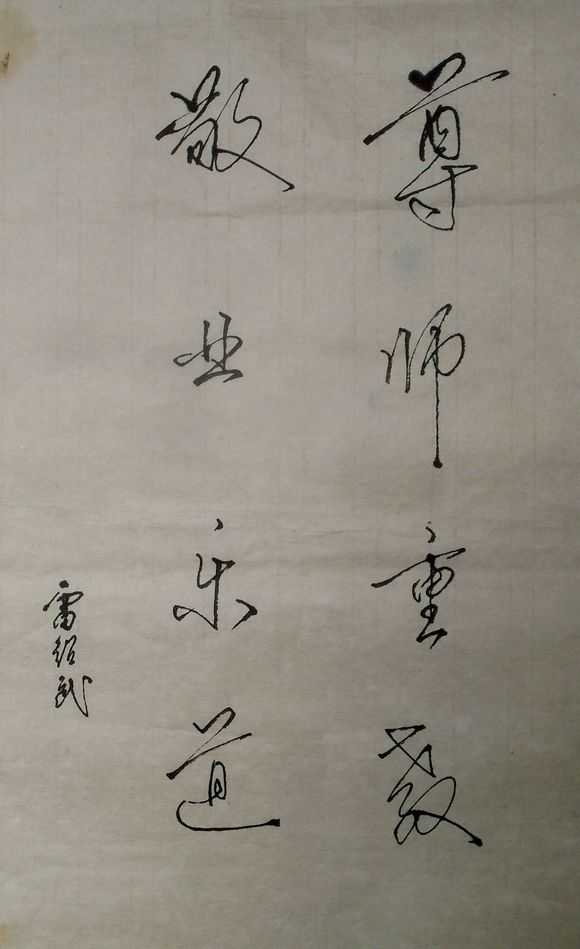 尊师重教
敬业乐道
雷绍武